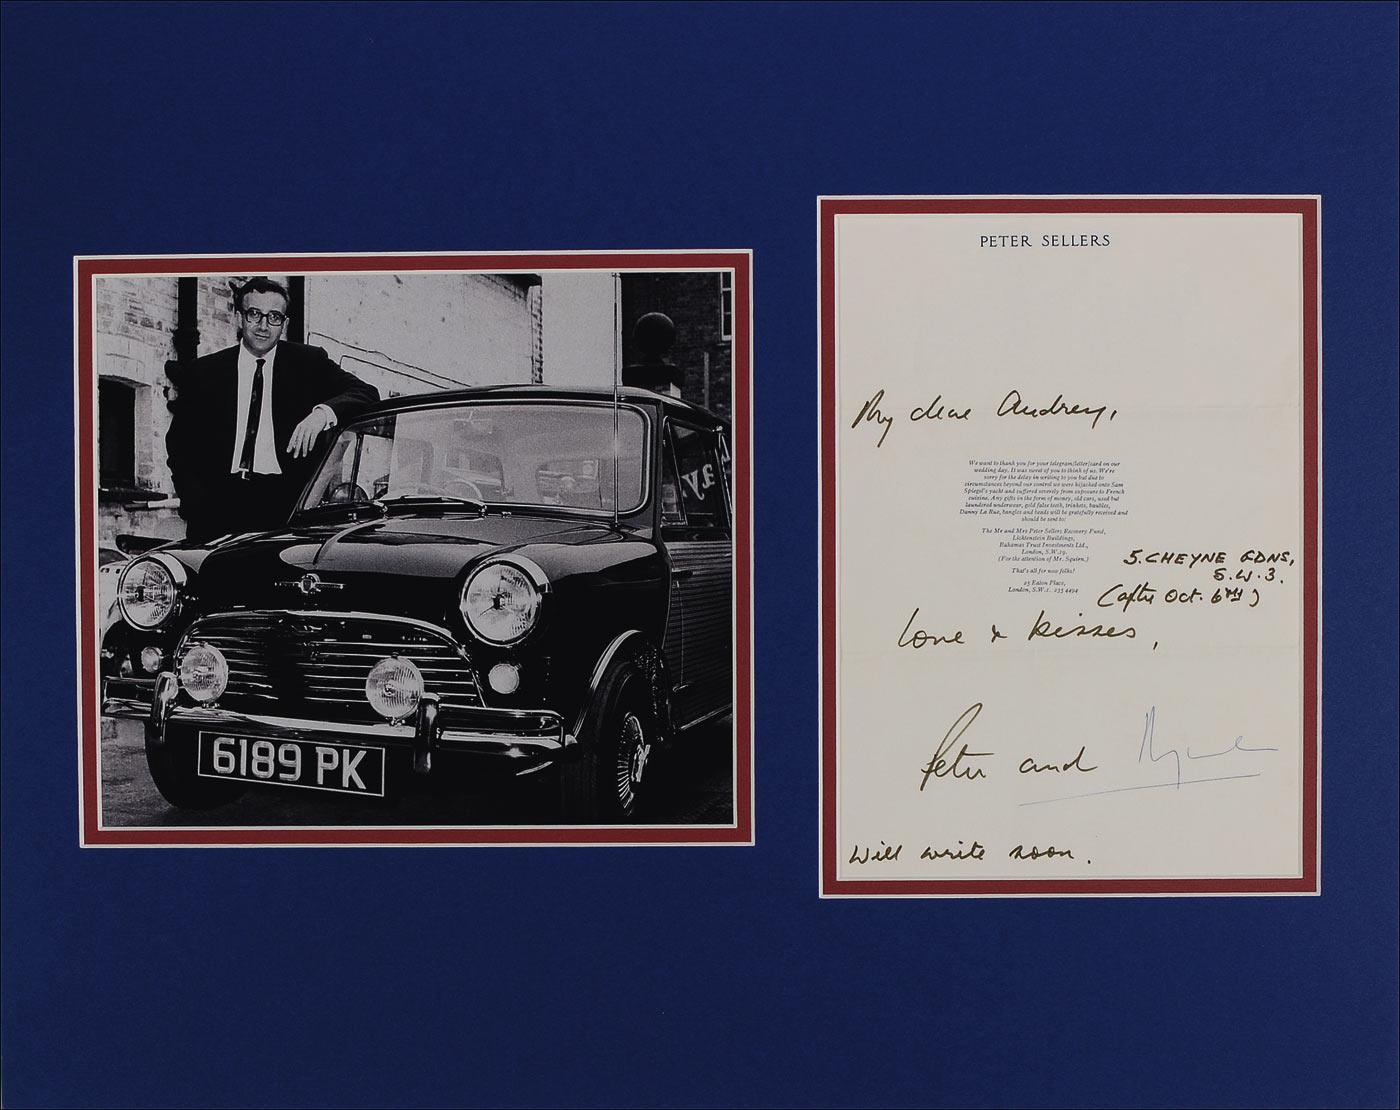 6189 PK
PETER SELLERS
My dear Audrey,
We want to thank you for your telegram/letter/card on our
wedding day. It was sweet of you to think of us. We're
sorry for the delay in writing to you but due to
circumstances beyond our control we were hijacked onto Sam
Spiegel's yacht and suffered severely from exposure to French
cuisine. Any gifts in the form of money, old cars, used but
laundered underwear, gold false teeth, trinkets, baubles,
Danny La Rue, bangles and beads will be gratefully received and
should be sent to:
The Mr and Mrs Peter Sellers Recovery Fund,
Lichtenstein Buildings,
Bahamas Trust Investments Ltd.,
London, S.W.19.
(For the attention of Mr. Squirn.)
That's all for now folks!
25 Eaton Place,
London, S.W.1. 235 4494
5. CHEYNE GDNS,
S.W.3.
(after Oct. 6TH)
Love & kisses,
Peter and
Will write soon.